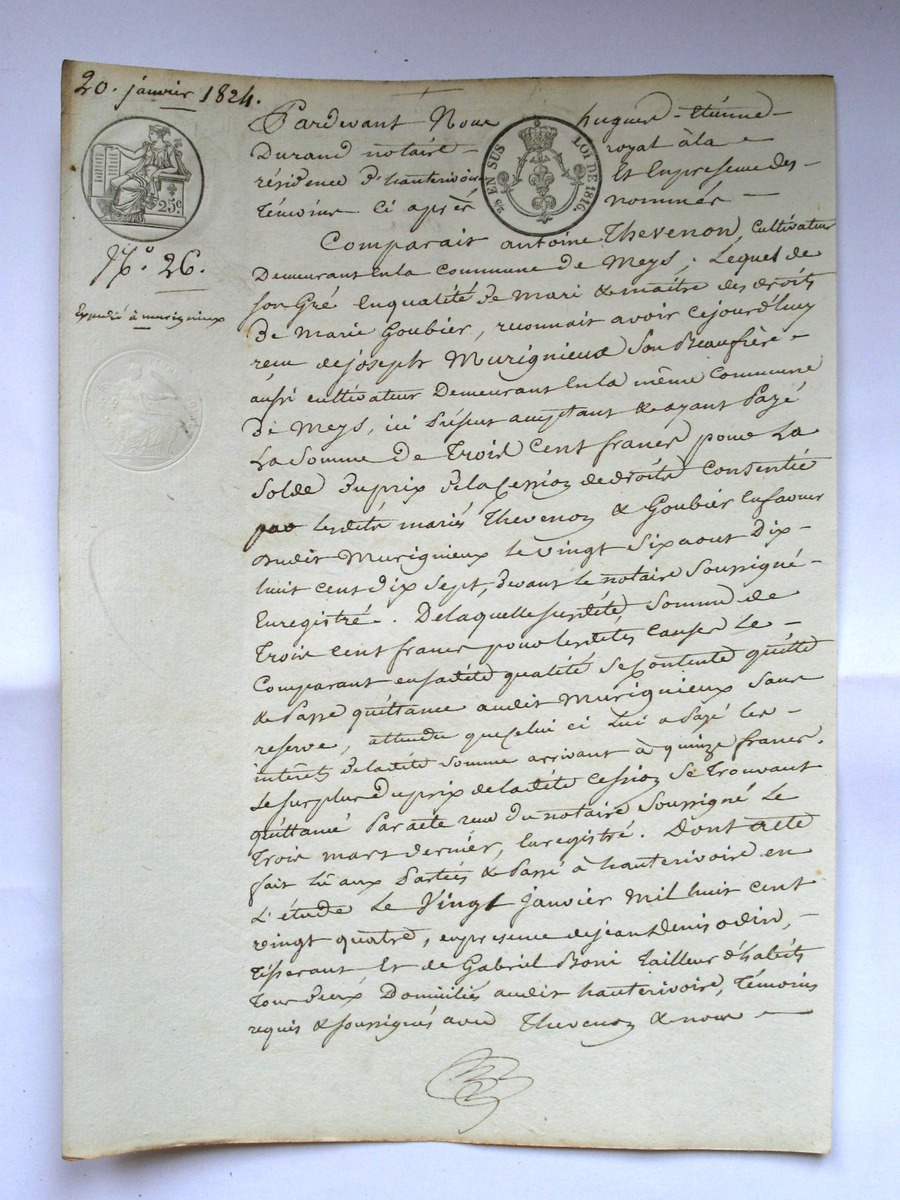 20. janvier 1824.
Pardevant Nous hugues-étienne-
Durand notaire- royal à la-
résidence d'hauterivoire Et Enpresence des-
Témoins ci après nommés-
25 EN SUS
LOI DE 1816.
25c
N.º 26.
Expedié à murignieux
Comparait antoine Thevenon, cultivateur
Demeurant En la commune de Meys, Lequel de
son Gré Enqualité de Mari & maître des droits
de Marie Goubier, reconnait avoir cejourd'huy
reçu de joseph Murignieux son Beaufrère-
aussi cultivateur Demeurant En la même Commune
de Meys, ici présent acceptant & ayant Payé
La Somme de Trois Cent francs pour La
Solde Duprix de la Cession de droits Consentie
par lesdits mariés Thevenon & Goubier Enfaveur
dudit Murignieux le vingt Six aout Dix-
huit cent dix sept, devant le notaire Soussigné-
Enregistré. De laquelle susdité Somme de
Trois Cent francs pour lesdites causes Le-
Comparant ensadité qualité se contente quitte
& Passe quittance audit Murignieux Sans
reserve, attendu que celui ci Lui a Payé les-
intérêts de ladité somme arrivant à quinze francs.
Le surplus duprix de ladité cession se Trouvant
quittancé Par acte reçu du notaire Soussigné Le
Trois mars dernier, Enregistré. Dont acte
fait Lû aux Parties & Passé à hauterivoire en
L'étude Le Vingt janvier Mil huit cent
vingt quatre, enpresence de jean Denis odin,-
Tisserant Et de Gabriel Boni Tailleur d'habits
Tous deux Domiciliés audit hauterivoire, Témoins
requis & soussignés avec Thevenon & nous-